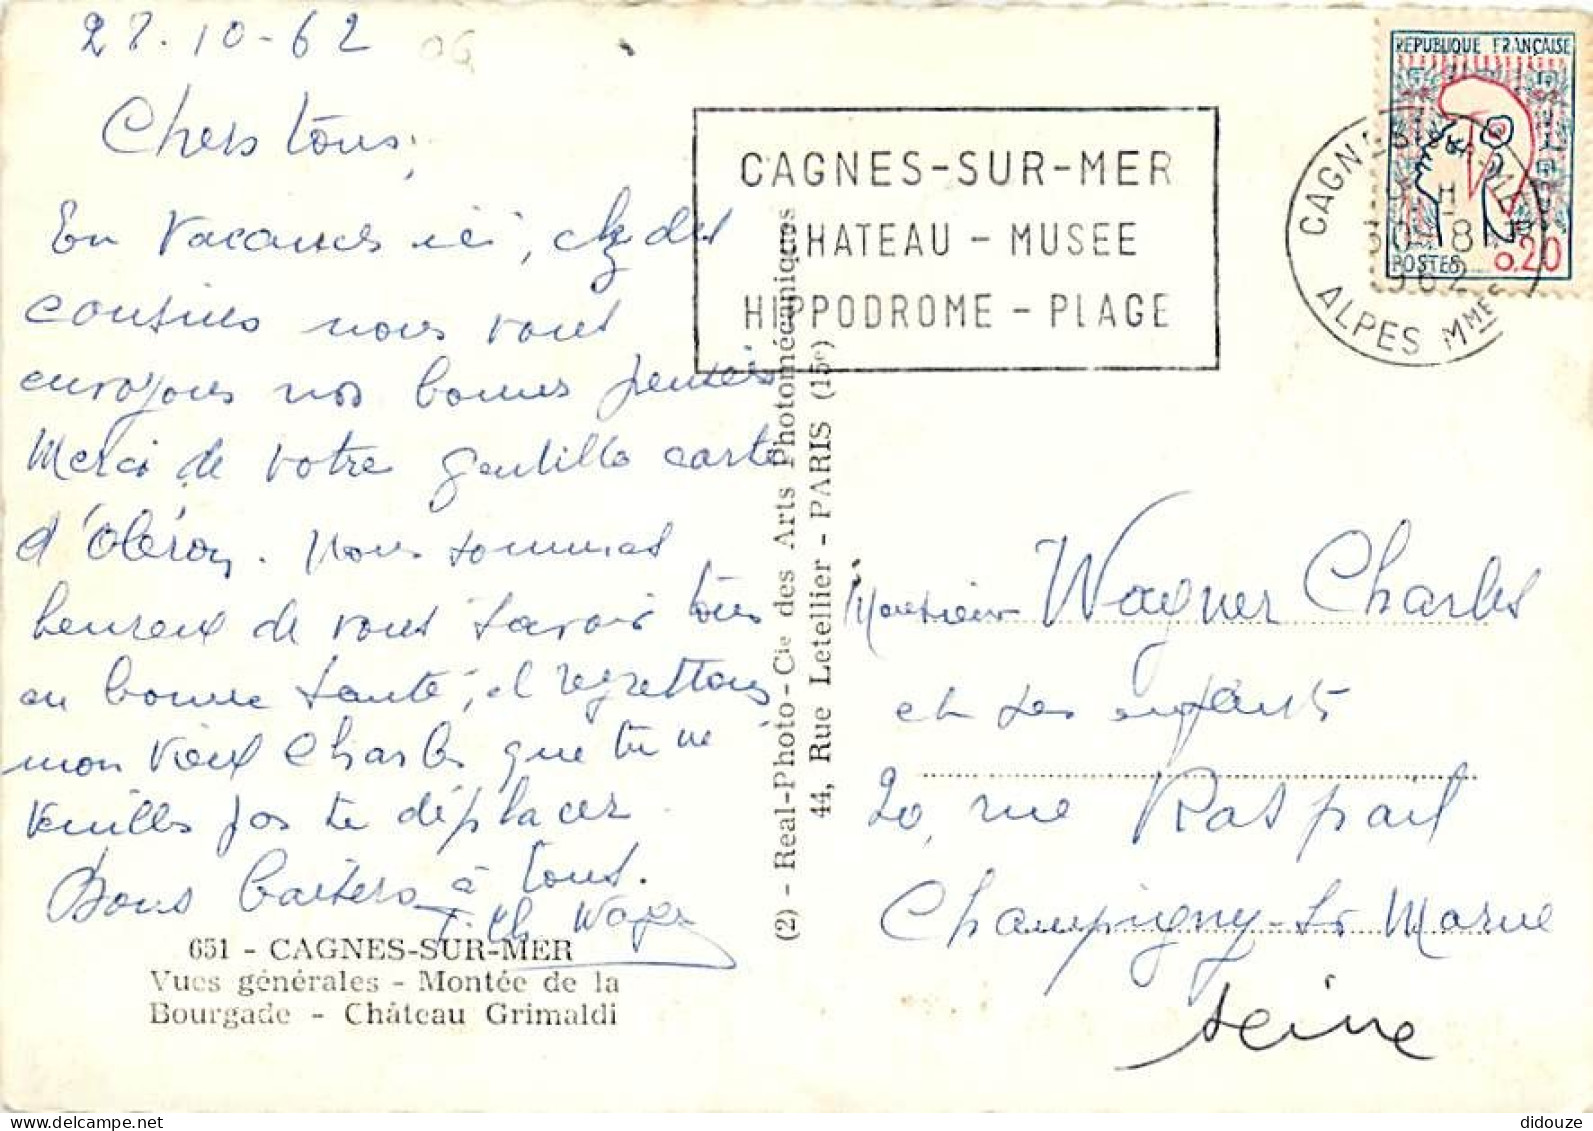 27.10-62
Chers tous,
En vacances ici, chez des
cousins nous vous
envoyons nos bonnes pensées
Merci de votre gentille carte
d'Oléron. Nous sommes
heureux de vous savoir tous
en bonne santé, et regrettons
mon vieux Charles que tu ne
veuilles pas te déplacer
Bons baisers à tous.
651 - CAGNES-SUR-MER
Vues générales - Montée de la
Bourgade - Château Grimaldi
(2) - Real-Photo - Cie des Arts Photomécaniques
44, Rue Letellier - PARIS (15e)
CAGNES-SUR-MER
CHATEAU - MUSEE
HIPPODROME - PLAGE
REPUBLIQUE FRANÇAISE
POSTES 0,20
CAGNES-SUR-MER
ALPES MMES
Monsieur Wagner Charles
et ses enfants
20, rue Raspail
Champigny-sr Marne
Seine
didouze